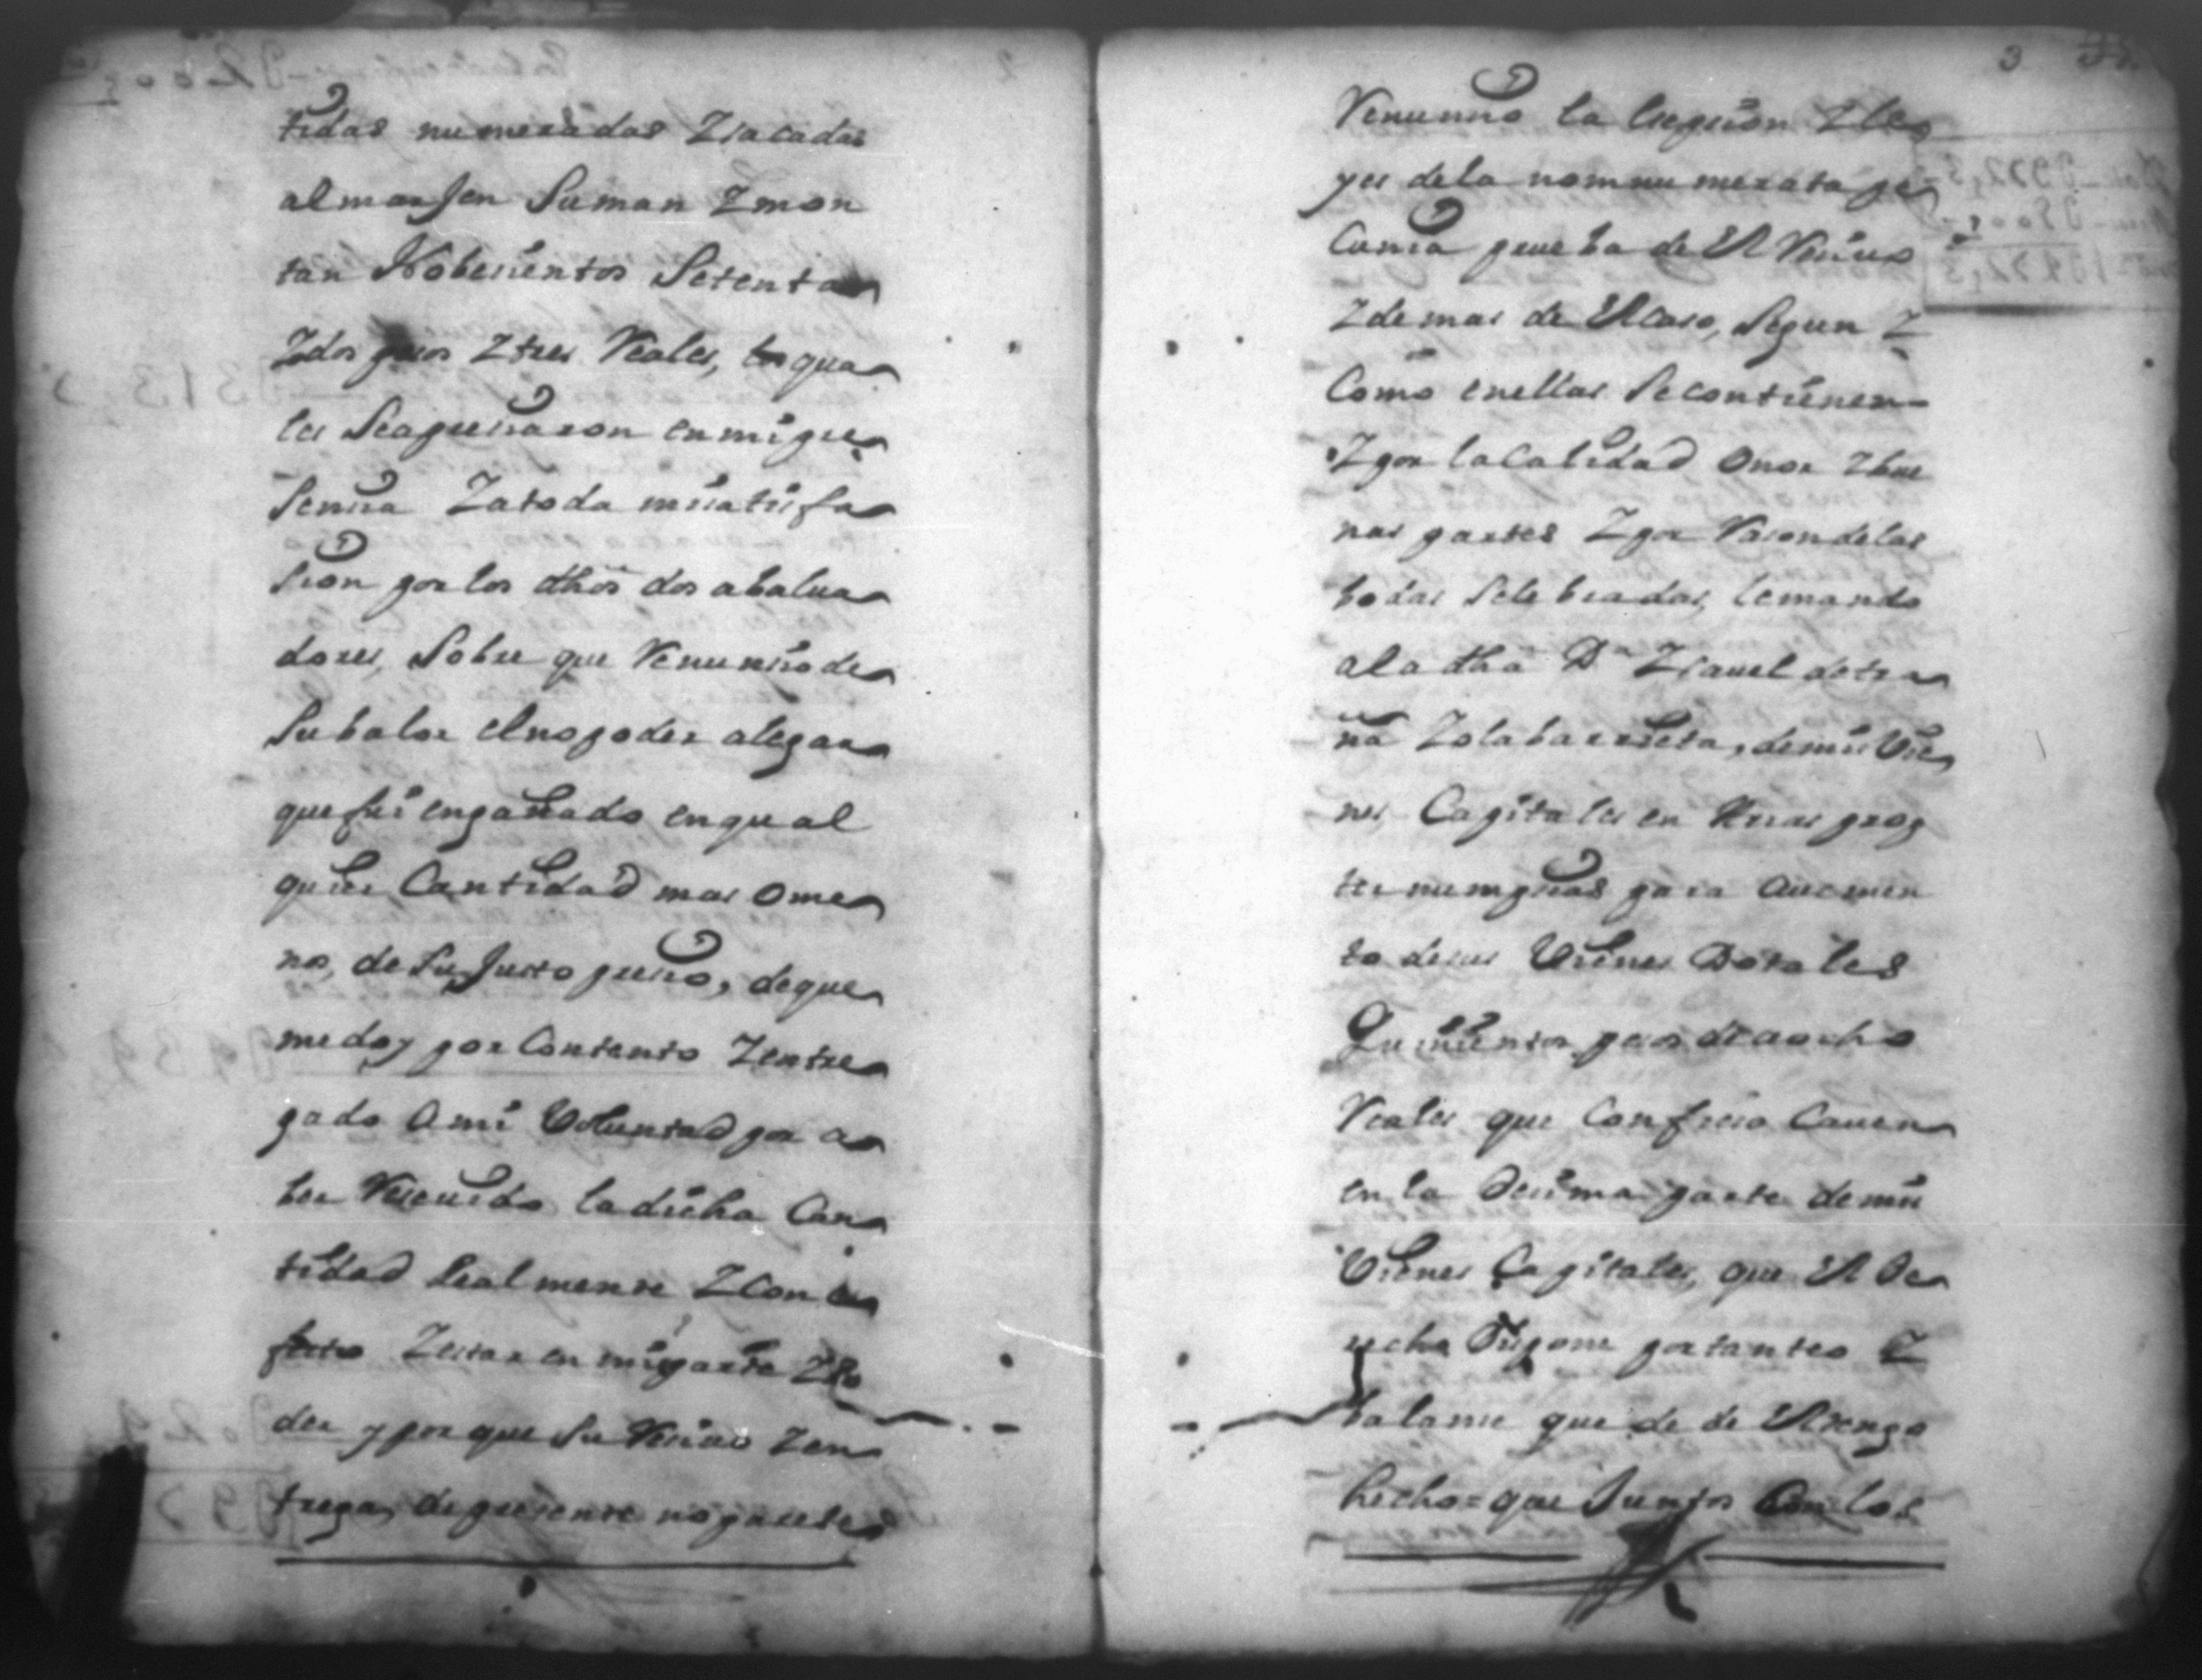 tidas numeradas Zsacadas
al marjen Suman Zmon
tan Nobesientos Setenta
Zdos pesos Ztres Reales, los qua
les Seapresiaron enmipre
Sensia Zatoda misatisfa
sion por los dhõs dos abalua
dores, Sobre que Renunsio de
Subalor elnopoder alegar
que fui engañado enqual
quier Cantidad mas Ome
no, de Su Justo presio, deque
medoy por Contento Zentre
gado Ami Voluntad por a
ber Reseuido ladicha Can
tidad Realmente Zcon e
fecto Zestar en miparte Zpo
der y porque Su Resiuo Zen
trega, depresente no parese
3
Renunsio la esepsion Zle
yes dela nonnumerata pe
Cunia prueba de El Resiuo
Zdemas de Elcaso, Segun Z
Como enellas Secontienen
Zpor lacalidad Onor Zbue
nas partes Zpor Rason delas
bodas Selebradas, lemando
ala dha Dª Zsauel de tra
ña Zolabarrieta, demis Vie
nes Capitales en Arras prop
ter numpsias para aucmen
to desus Vienes Dotales
Quinientos pesos de aocho
Reales que Confieso Cauen
en la Desima parte de mis
Vienes Capitales, que El De
recho Dispone portanteo Z
balanse que de de Eltengo
hecho = que Juntos Con los